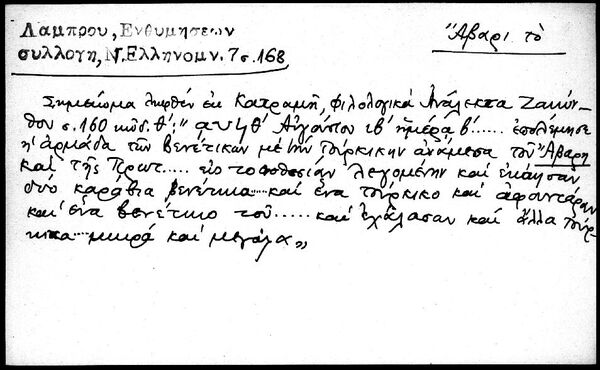 Λάμπρου, Ενθυμήσεων
συλλογή, Ν. Ελληνομν. 7 σ. 168
Ἄβαρι τὸ
Σημείωμα ληφθὲν ἐκ Κατραμῆ, φιλολογικὰ Ἀνάλεκτα Ζακύν-
θου σ. 160 κώδ. θ΄: "αυϟθ΄ Αὐγούστου ιβ΄ ἡμέρᾳ β΄...... ἐπολέμησε
η ἁρμάδα τῶν βενέτικων μὲ τὴν Τούρκικην ἀνάμεσα τοῦ Ἄβαρη
καὶ τῆς Πρωτ..... εἰς τοποθεσίαν λεγομένην καὶ ἐκάησαν
δύο καράβια βενέτικα....καὶ ἕνα τούρκικο καὶ
καὶ ἕνα βενέτικο τοῦ..... καὶ ἐχάλασαν καὶ ἄλλα τούρ-
κικα μικρὰ καὶ μεγάλα„